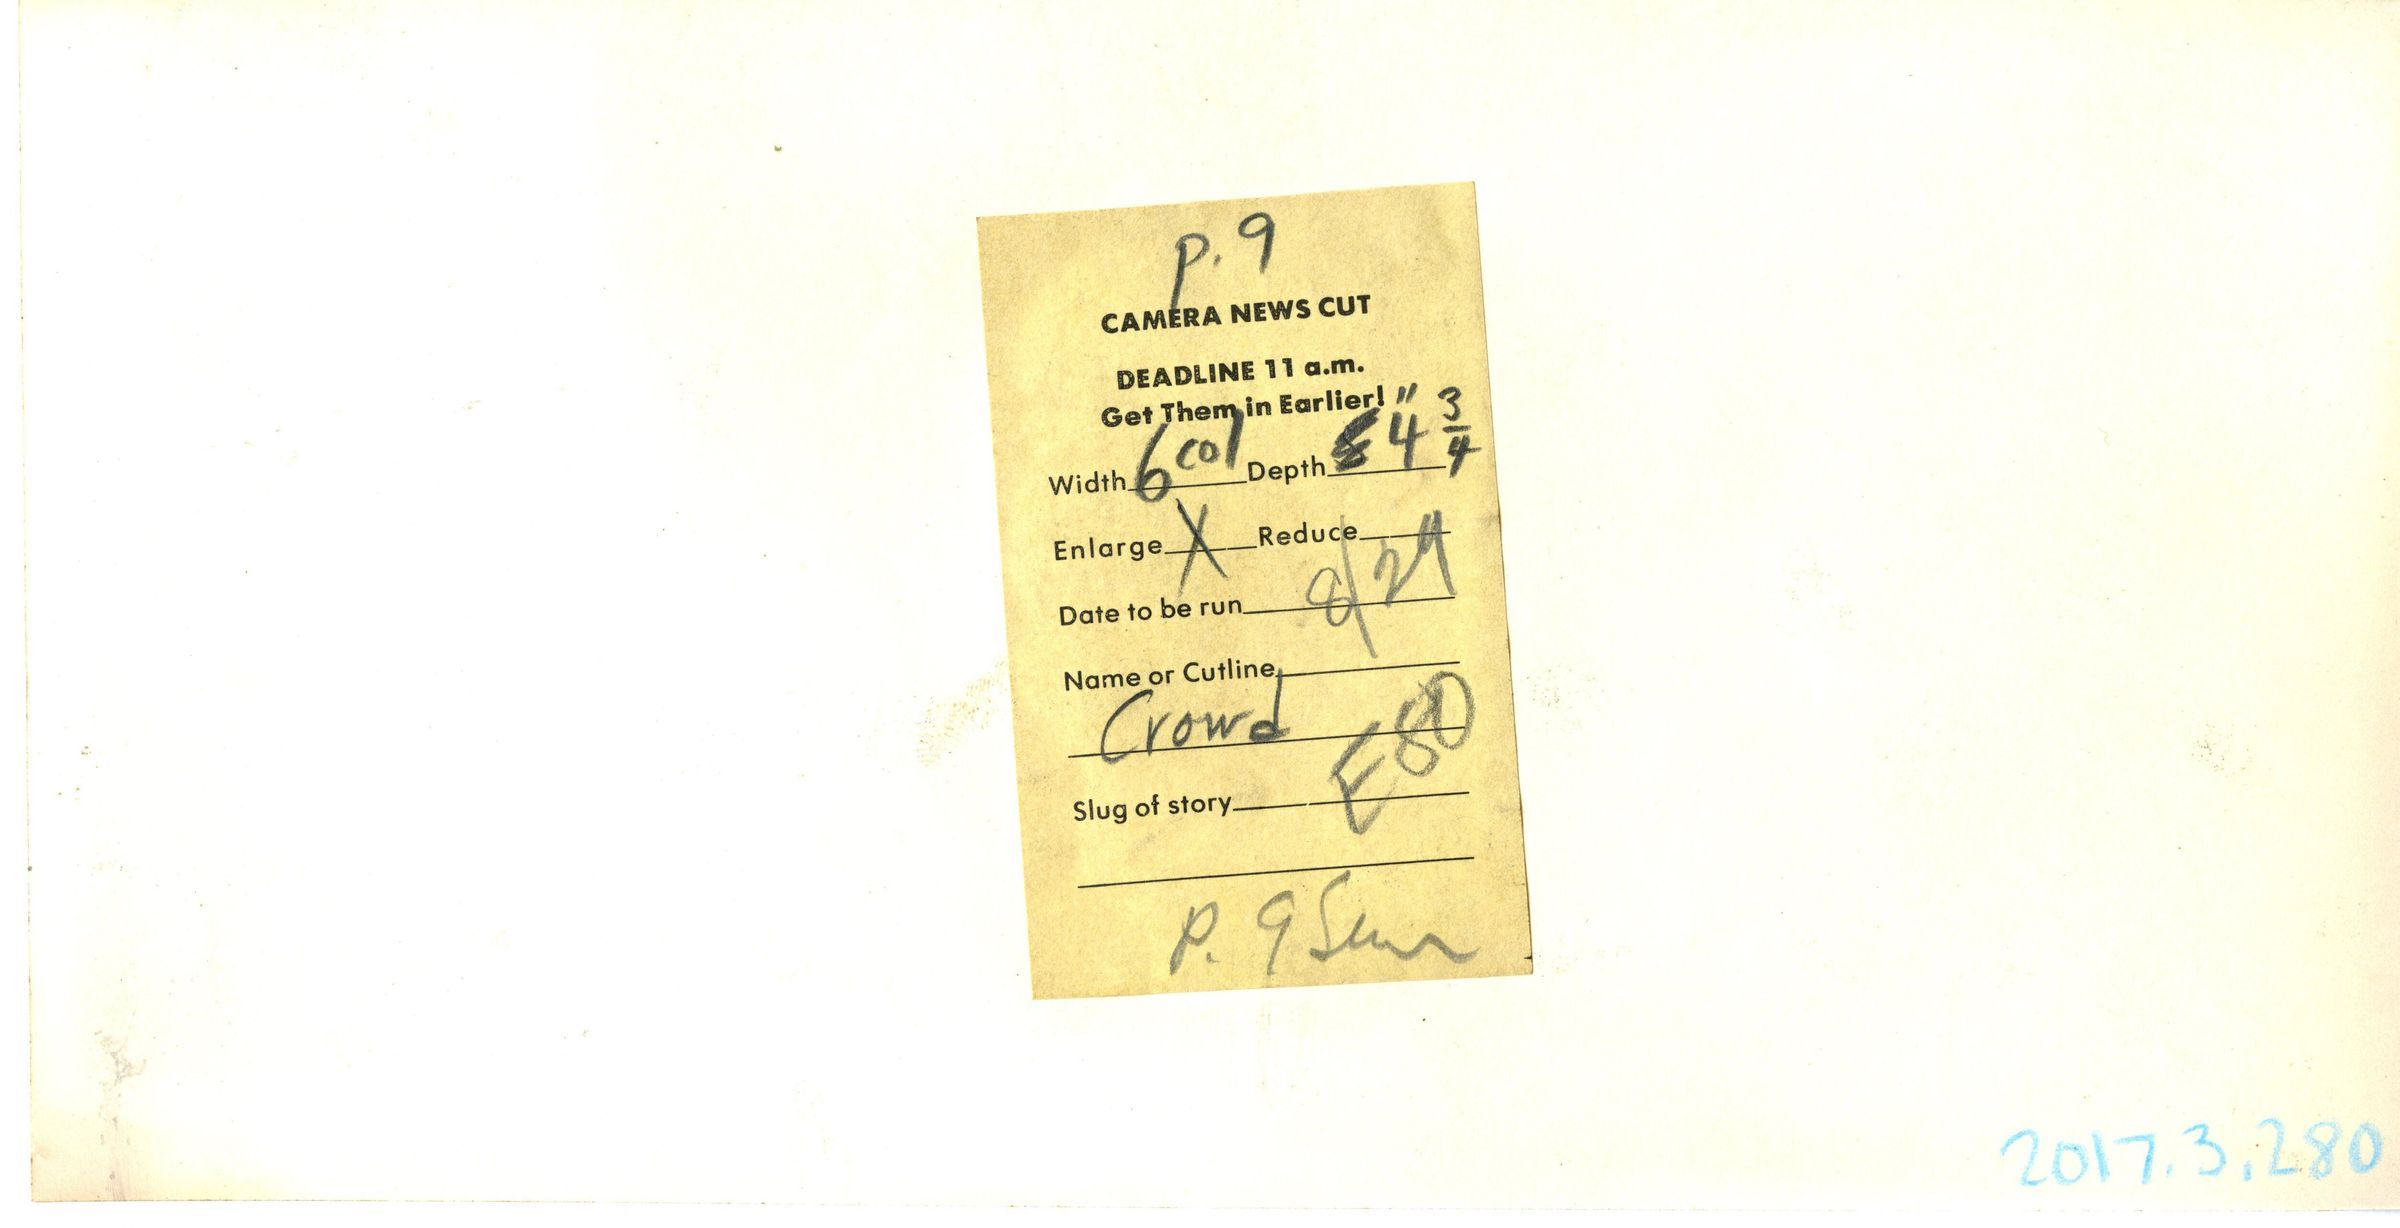 p. 9
CAMERA NEWS CUT
DEADLINE 11 a.m.
Get Them in Earlier!
Width 6 col Depth 4 3/4"
Enlarge X Reduce
Date to be run 8/29
Name or Cutline
Crowd
E80
Slug of story
P. 9
2017.3.280